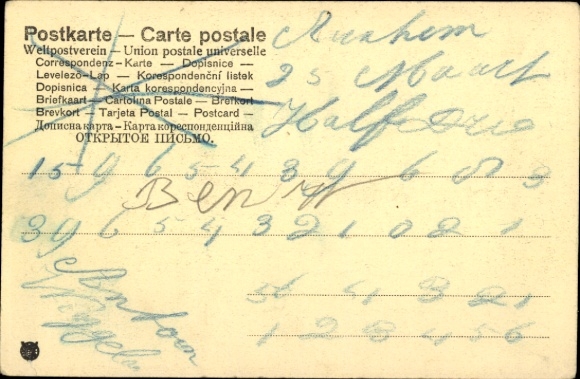 Postkarte — Carte postale
Weltpostverein — Union postale universelle
Correspondenz-Karte — Dopisnice —
Levelezö-Lap — Korespondenční listek
Dopisnica — Karta korespondencyjna —
Briefkaart — Cartolina Postale — Brefkort
Brevkort — Tarjeta Postal — Postcard —
Дописна карта — Карта кореспонденційна
ОТКРЫТОЕ ПИСЬМО.
Arnhem
25 Maart
Half Drie
15 9 6 5 4 3 9 6 5 3
Ben
39 6 5 4 3 2 1 0 2 1
Antoon
56 4 3 2 1
1 2 3 4 5 6